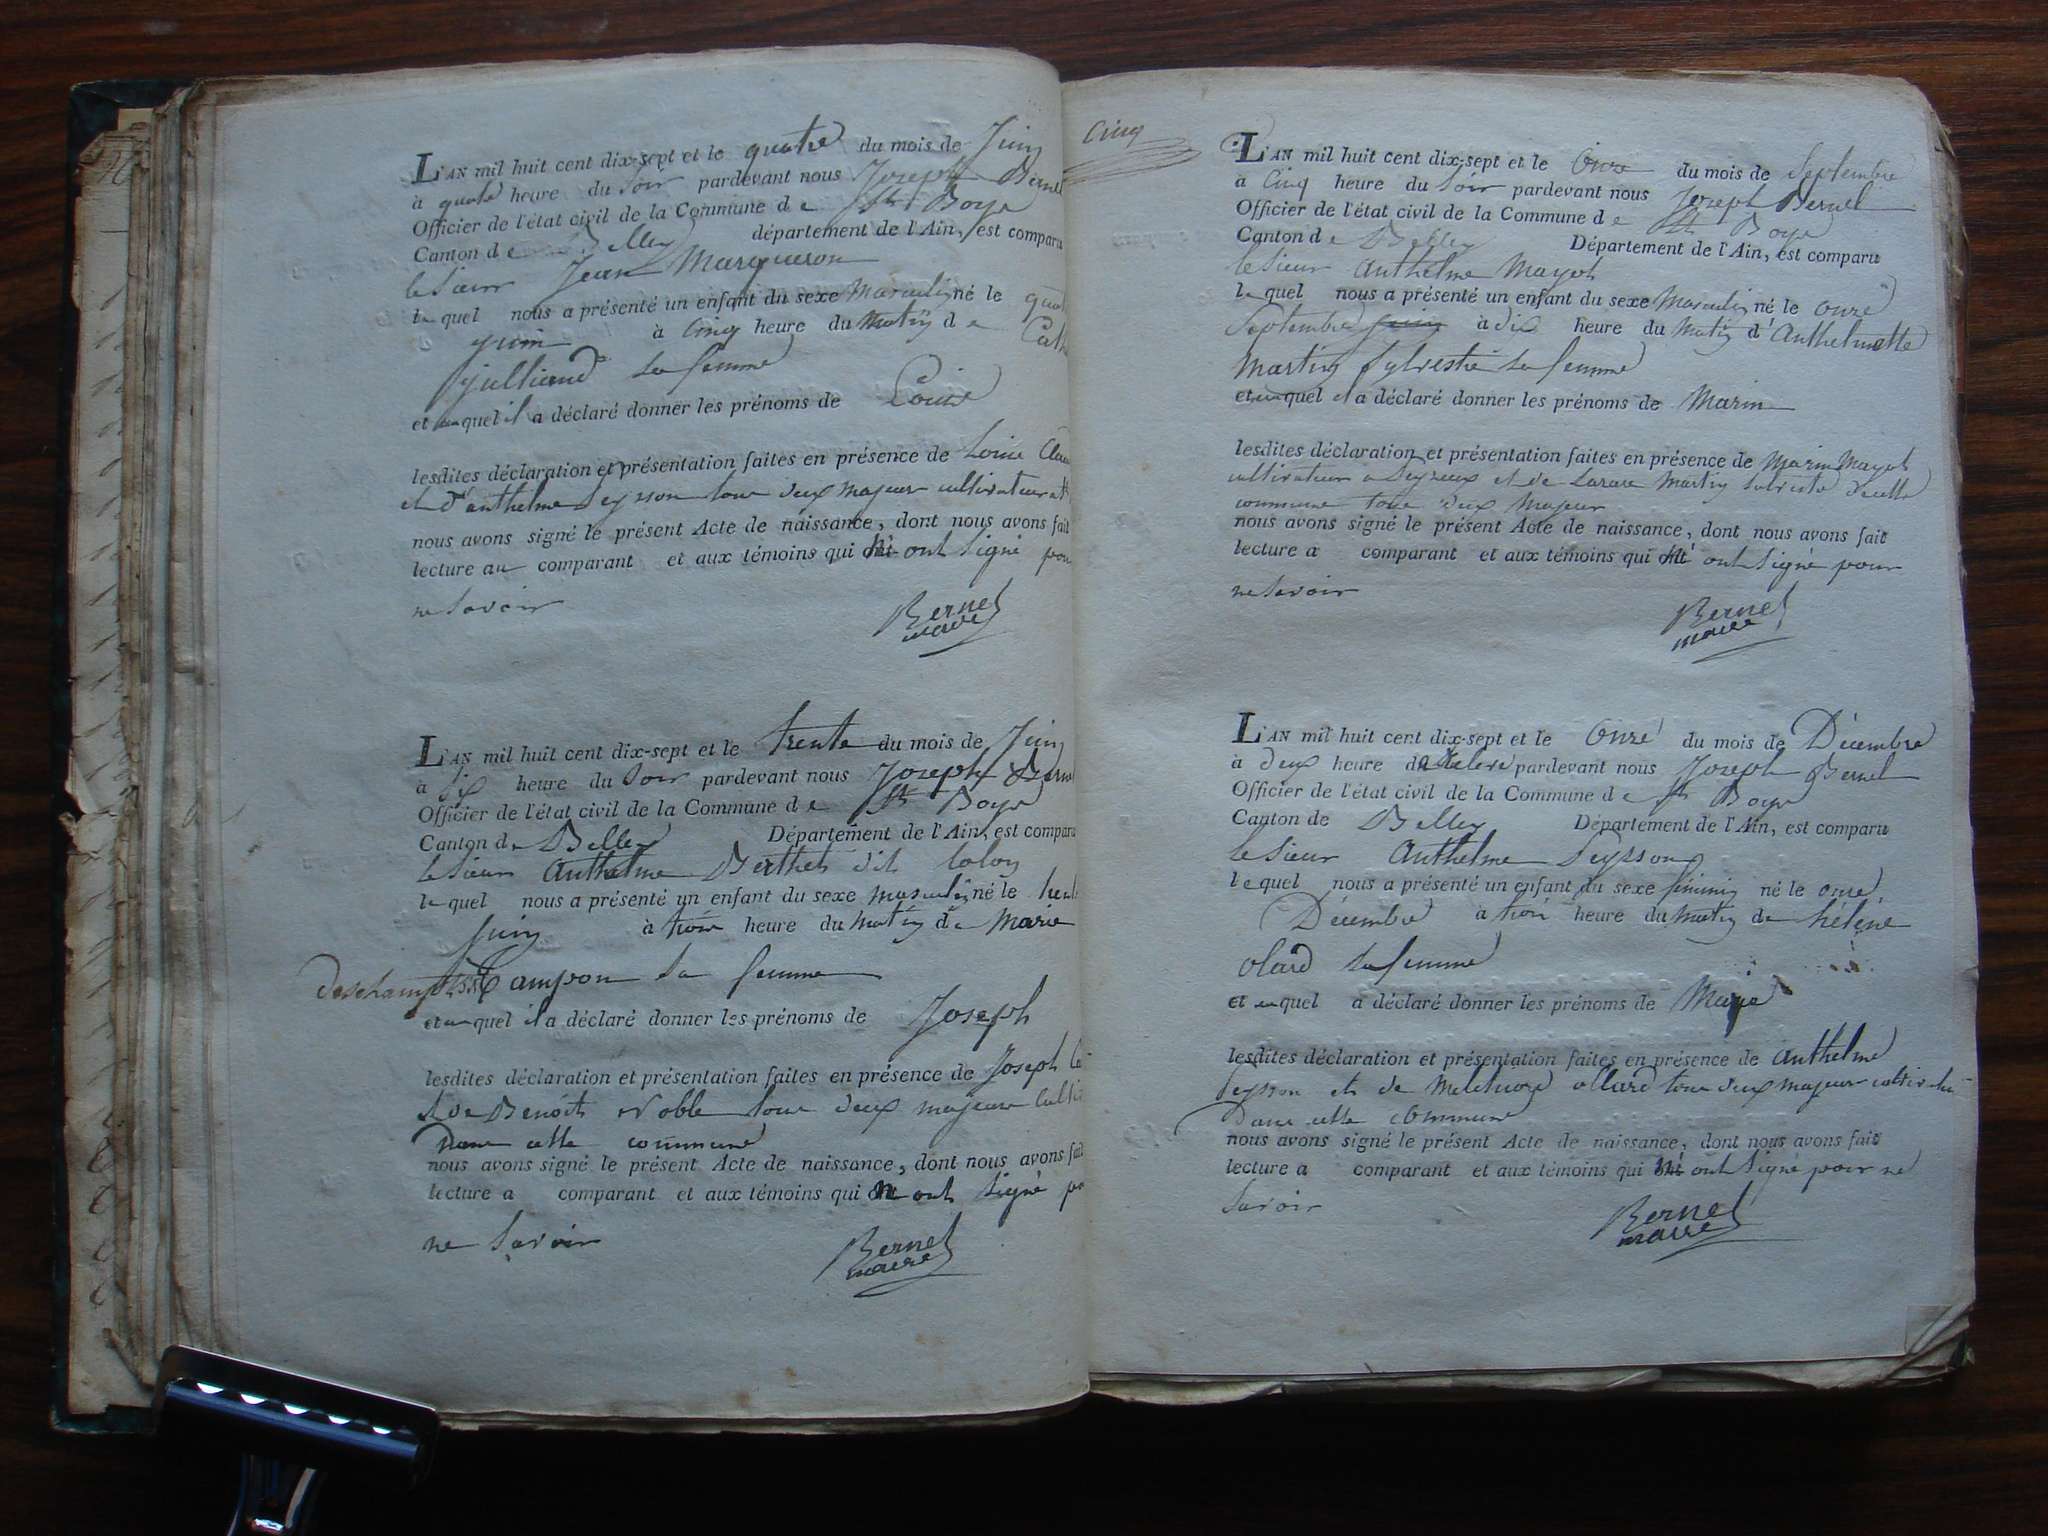 L'AN mil huit cent dix-sept et le quatre du mois de Juin
à quatre heure du Soir pardevant nous Joseph Bernel
Officier de l'état civil de la Commune de St Boys
Canton de Belley département de l'Ain, est comparu
le Sieur Jean Marqueron
lequel nous a présenté un enfant du sexe Masculin né le
juin à Cinq heure du Matin de
julliand sa femme
et auquel il a déclaré donner les prénoms de Louis
lesdites déclaration et présentation faites en présence de Louis
et d'anthelme Peysson tous deux majeur cultivateur
nous avons signé le présent Acte de naissance, dont nous avons fait
lecture au comparant et aux témoins qui ont signé pour
ne Savoir
Bernel
maire
L'AN mil huit cent dix-sept et le trente du mois de Juin
à Six heure du Soir pardevant nous Joseph Bernel
Officier de l'état civil de la Commune de St Boys
Canton de Belley Département de l'Ain, est comparu
le Sieur Anthelme Berthet dit Colon
lequel nous a présenté un enfant du sexe masculin né le
Juin à trois heure du Matin de Marie
deschamps sa femme
et auquel il a déclaré donner les prénoms de Joseph
lesdites déclaration et présentation faites en présence de Joseph
et de Benoit Noble tous deux majeurs
dans cette commune
nous avons signé le présent Acte de naissance, dont nous avons fait
lecture a comparant et aux témoins qui ont signé
ne Savoir
Bernel
maire
Cinq
L'AN mil huit cent dix-sept et le Onze du mois de Septembre
à Cinq heure du Soir pardevant nous Joseph Bernel
Officier de l'état civil de la Commune de St Boys
Canton de Belley Département de l'Ain, est comparu
le Sieur Anthelme Mayot
lequel nous a présenté un enfant du sexe Masculin né le onze
Septembre à dix heure du Matin d'Anthelmette
Martin Sylvestre sa femme
et auquel il a déclaré donner les prénoms de Marin
lesdites déclaration et présentation faites en présence de Marin Mayot
cultivateur a Peyrieux et de Lazare Martin Sylvestre de cette
commune tous deux Majeur
nous avons signé le présent Acte de naissance, dont nous avons fait
lecture a comparant et aux témoins qui ont Signé pour
ne Savoir
Bernel
maire
L'AN mil huit cent dix-sept et le Onze du mois de Décembre
à deux heure pardevant nous Joseph Bernel
Officier de l'état civil de la Commune de St Boys
Canton de Belley Département de l'Ain, est comparu
le Sieur Anthelme Peysson
lequel nous a présenté un enfant du sexe féminin né le onze
Décembre à trois heure du Matin de hélène
olard sa femme
et auquel a déclaré donner les prénoms de Marie
lesdites déclaration et présentation faites en présence de Anthelme
Peysson et de Melchiore ollard tous deux majeur
dans cette commune
nous avons signé le présent Acte de naissance, dont nous avons fait
lecture a comparant et aux témoins qui ont Signé pour ne
Savoir
Bernel
maire